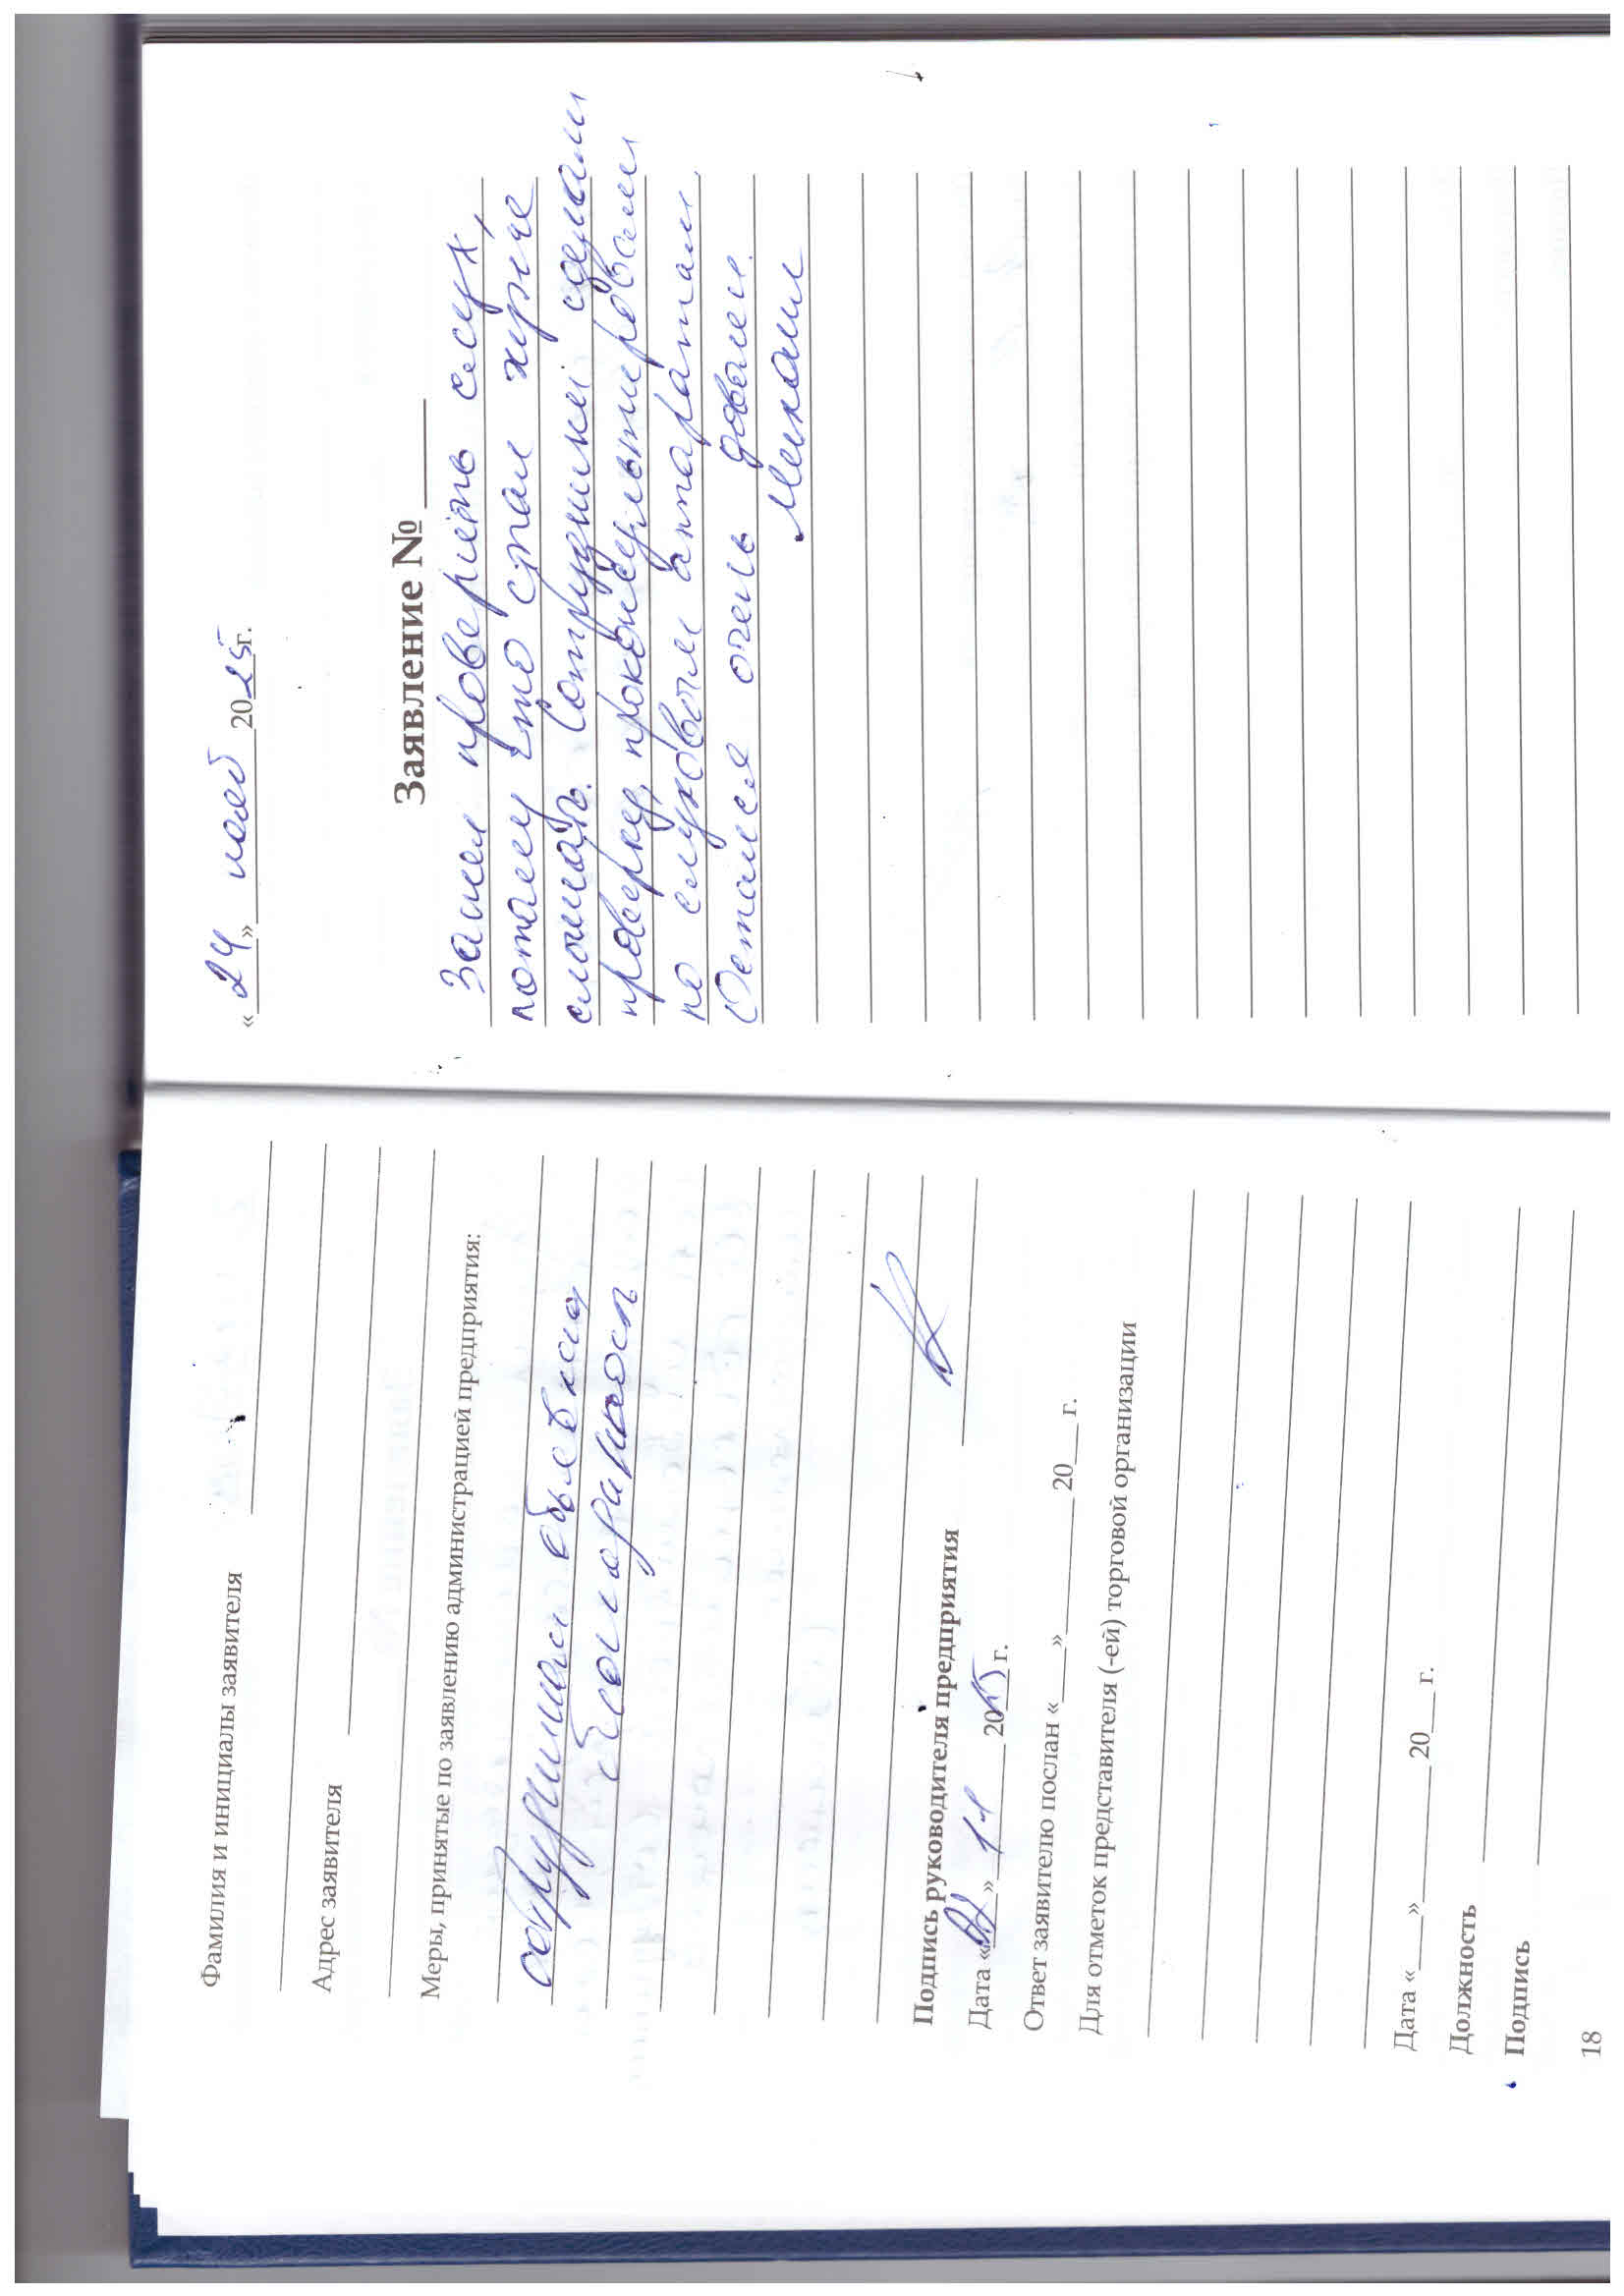 Фамилия и инициалы заявителя
Адрес заявителя
Меры, принятые по заявлению администрацией предприятия:
сотрудникам объявлена
благодарность
Подпись руководителя предприятия
Дата « » 11 2025 г.
Ответ заявителю послан «___»______ 20___ г.
Для отметок представителя (-ей) торговой организации
Дата «___»______ 20___ г.
Должность
Подпись
18
«24» нояб 2025 г.
Заявление № ____
Зашел проверить слух,
потому что стал хуже
слышать. Сотрудники сделали
проверку, проконсультировали
по слуховым аппаратам.
Остался очень доволен.